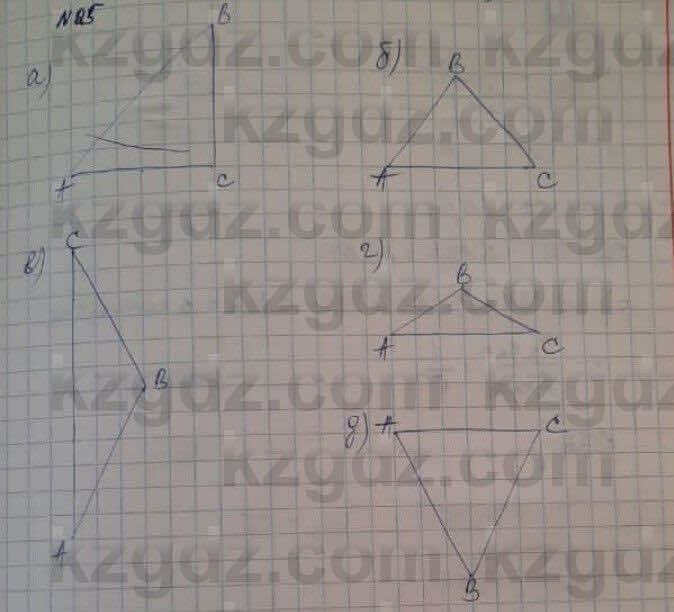 N 125
а)
B
A
C
б)
B
A
C
в)
C
B
A
г)
B
A
C
д)
A
C
B
kzgdz.com kzgdz.com
kzgdz.com
kzgdz.com kzgdz.com
kzgdz.com
kzgdz.com kzgdz.com
kzgdz.com
kzgdz.com kzgdz.com